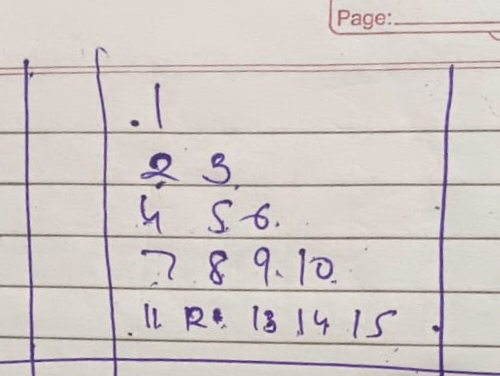 Page:
1
2 3
4 5 6
7 8 9 10
11 12 13 14 15